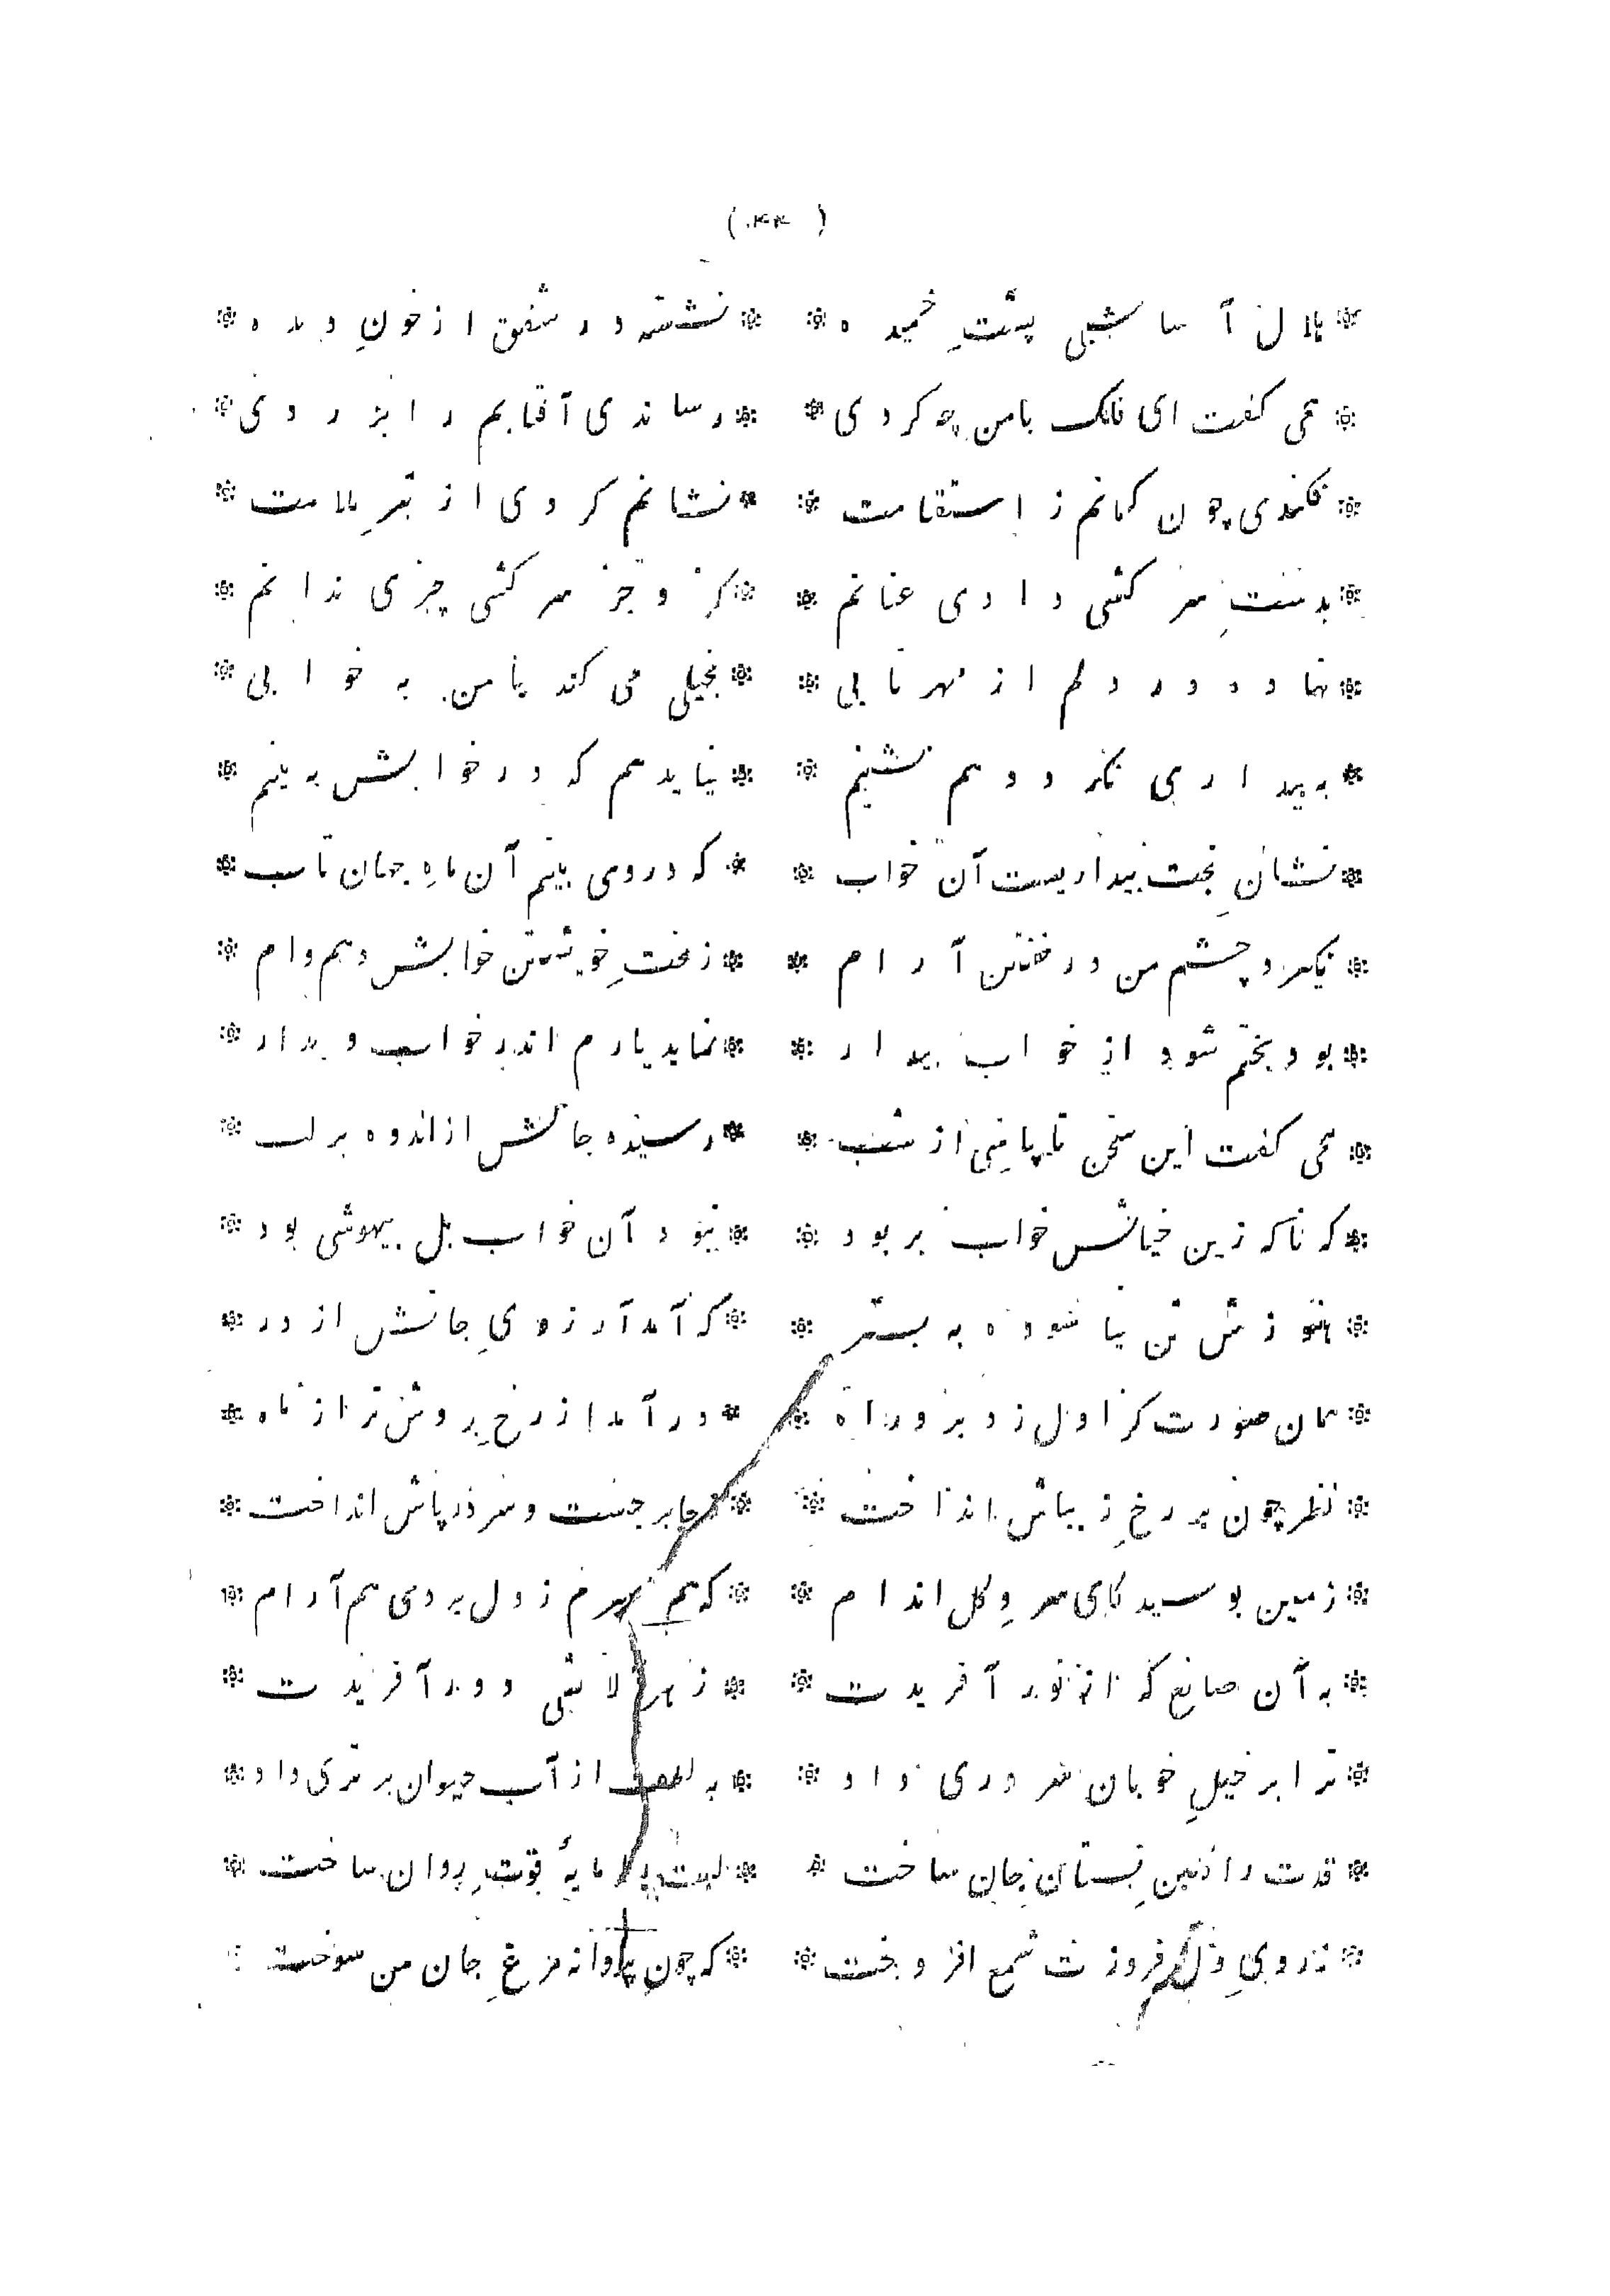 (۴۴)
هلال آسا شبی پشتِ خمیده * نشسته در شفق از خونِ دیده
همی گفت ای فلک بامن چه کردی * رساندی آفتابم را بزردی
فکندی چون کمانم ز استقامت * نشانم کردی از تیرِ ملامت
بدستِ سرکشی دادی عنانم * کزو جز سرکشی چیزی ندانم
نهاده در دلم از مهر تابی * بخیلی می کند با من به خوابی
به بیداری نگردد هم نشینم * نیاید هم که در خوابش به بینم
نشانِ بخت بیداریست آن خواب * که در وی بینم آن ماهِ جهان تاب
نگیرد چشم من در خفتن آرام * ز بختِ خویشتن خوابش دهم وام
بود بختم شود از خواب بیدار * نماید یارم اندر خواب دیدار
همی گفت این سخن تا پاسی از شب * رسیده جانش از اندوه بر لب
که ناگه زین خیالش خواب بربود * نبود آن خواب بل بیهوشی بود
هنوزش تن نیاسوده به بستر * که آمد آرزویِ جانش از در
همان صورت کز اول زد برو راه * در آمد از رخِ روشن تر از ماه
نظر چون بر رخِ زیباش انداخت * ز جا برجست و سر در پاش انداخت
زمین بوسید کای سروِ گل اندام * که هم صبرم ز دل بردی هم آرام
به آن صانع که از نور آفریدت * ز هر آلایشی دور آفریدت
ترا بر خیلِ خوبان سروری داد * به لطف از آب حیوان برتری داد
قدت را نخلِ بستانِ جان ساخت * لبت را مایهٔ قوتِ روان ساخت
ز رویِ دل فروزت شمع افروخت * که چون پروانه مرغِ جان من سوخت